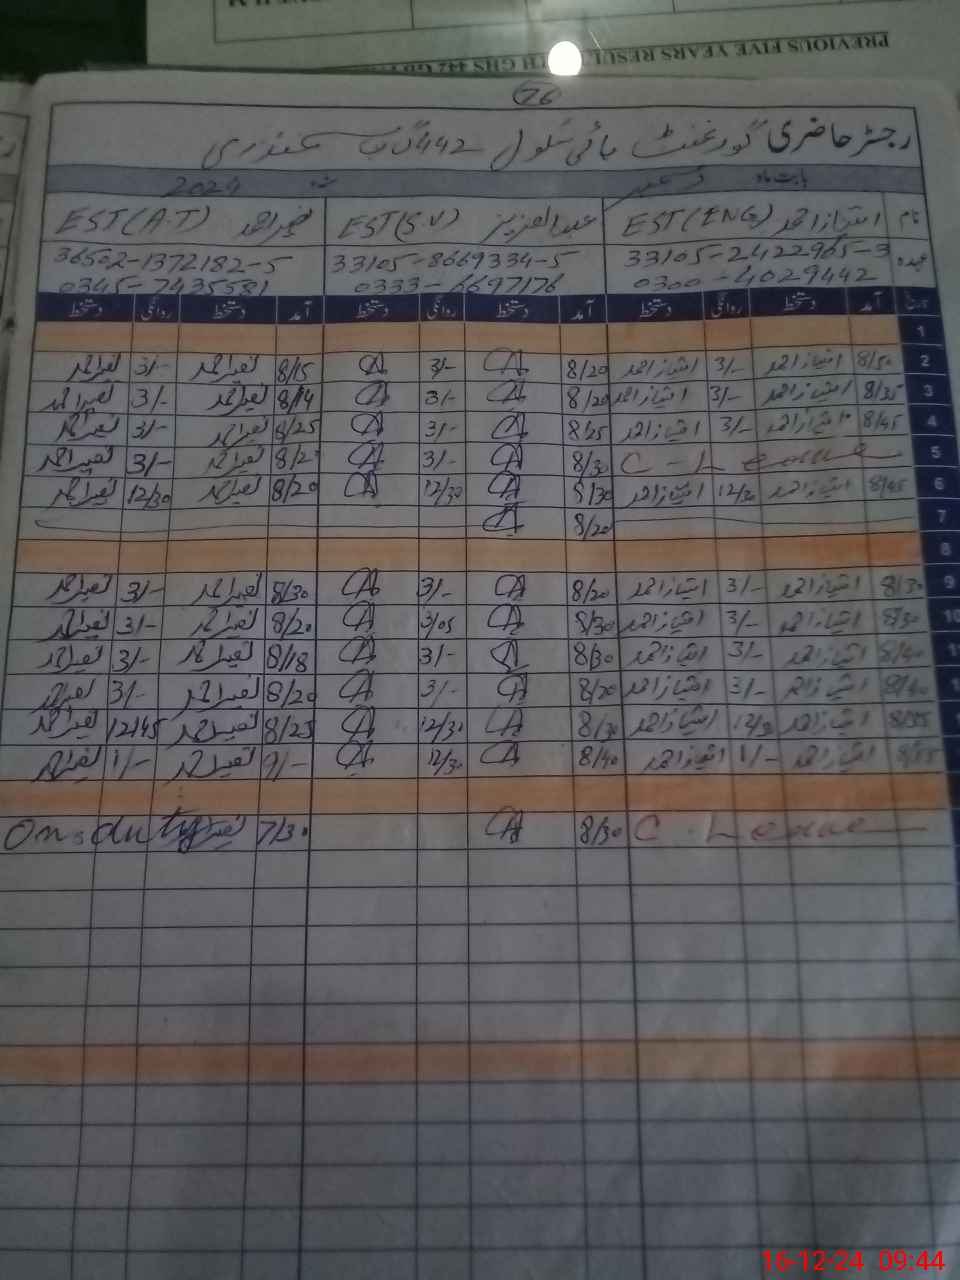 PREVIOUS FIVE YEARS RESULT GHS 442 GB
76
رجسٹر حاضری گورنمنٹ ہائی سکول 442 گ ب سمندری
بابت ماہ دسمبر سنہ 2024
نام امتیاز احمد EST (ENG) عبدالعزیز EST (S.V) نصیر احمد EST (A.T)
عہدہ 33105-2422965-3 33105-8669334-5 36502-1372182-5
0300-4029442 0333-6697176 0345-7435581
تاریخ آمد دستخط روانگی دستخط آمد دستخط روانگی دستخط آمد دستخط روانگی دستخط
1
2 8/50 امتیاز احمد 3/- امتیاز احمد 8/20 3/- 8/15 نصیر احمد 3/- نصیر احمد
3 8/35 امتیاز احمد 3/- امتیاز احمد 8/20 3/- 8/14 نصیر احمد 3/- نصیر احمد
4 8/45 امتیاز احمد 3/- امتیاز احمد 8/25 3/- 8/25 نصیر احمد 3/- نصیر احمد
5 C - Leave 8/30 3/- نصیر احمد 3/- نصیر احمد
6 8/45 امتیاز احمد 12/30 امتیاز احمد 8/30 12/30 8/20 نصیر احمد 12/30 نصیر احمد
7 8/20
8
9 8/30 امتیاز احمد 3/- امتیاز احمد 8/20 3/- 8/30 نصیر احمد 3/- نصیر احمد
10 8/30 امتیاز احمد 3/- امتیاز احمد 8/30 3/05 8/20 نصیر احمد 3/- نصیر احمد
8/40 امتیاز احمد 3/- امتیاز احمد 8/30 3/- 8/18 نصیر احمد 3/- نصیر احمد
8/40 امتیاز احمد 3/- امتیاز احمد 8/20 3/- 8/20 نصیر احمد 3/- نصیر احمد
امتیاز احمد 12/30 امتیاز احمد 8/30 12/30 8/25 نصیر احمد 12/45 نصیر احمد
امتیاز احمد 1/- امتیاز احمد 8/40 12/30 9/- نصیر احمد 1/- نصیر احمد
C - Leave 8/30 7/30 نصیر احمد On duty
16-12-24 09:44